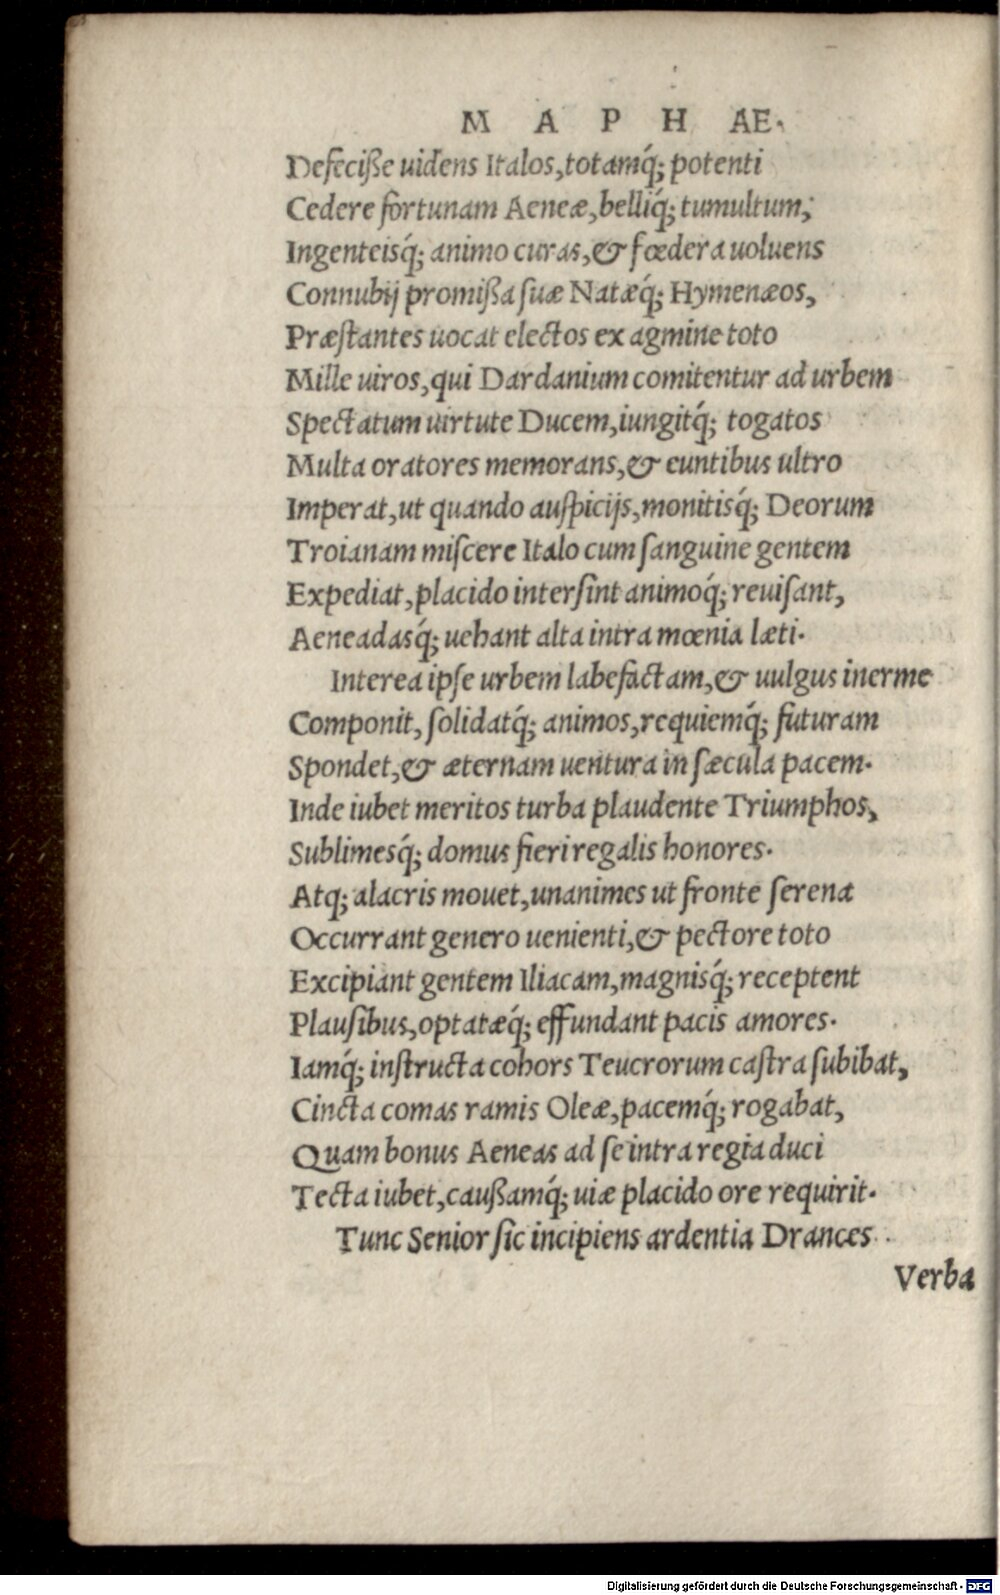 M A P H AE.
Defeciße uidens Italos, totamq́; potenti
Cedere fortunam Aeneæ, belliq́; tumultum,
Ingenteisq́; animo curas, & fœdera uoluens
Connubij promißa suæ Natæq́; Hymenæos,
Præstantes uocat electos ex agmine toto
Mille uiros, qui Dardanium comitentur ad urbem
Spectatum uirtute Ducem, iungitq́; togatos
Multa oratores memorans, & euntibus ultro
Imperat, ut quando auspicijs, monitisq́; Deorum
Troianam miscere Italo cum sanguine gentem
Expediat, placido intersint animoq́; reuisant,
Aeneadasq́; uehant alta intra mœnia læti.
Interea ipse urbem labefactam, & uulgus inerme
Componit, solidatq́; animos, requiemq́; futuram
Spondet, & æternam uentura in sæcula pacem.
Inde iubet meritos turba plaudente Triumphos,
Sublimesq́; domus fieri regalis honores.
Atq; alacris mouet, unanimes ut fronte serena
Occurrant genero uenienti, & pectore toto
Excipiant gentem Iliacam, magnisq́; receptent
Plausibus, optatæq́; effundant pacis amores.
Iamq́; instructa cohors Teucrorum castra subibat,
Cincta comas ramis Oleæ, pacemq́; rogabat,
Quam bonus Aeneas ad se intra regia duci
Tecta iubet, caußamq́; uiæ placido ore requirit.
Tunc Senior sic incipiens ardentia Drances
Verba
Digitalisierung gefördert durch die Deutsche Forschungsgemeinschaft - DFG